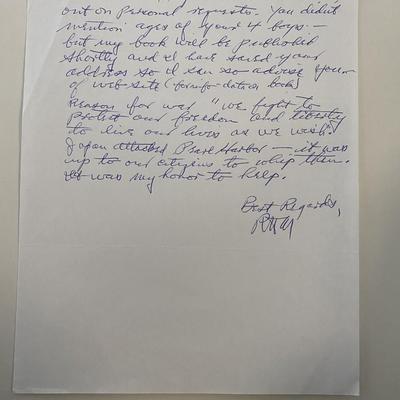 out on personal requests. You didn't
mention ages of your 4 boys -
but my book will be published
shortly and I have saved your
address so I can so advise you
of web site (for info-data on book)
Reason for war "we fight to
protect our freedom and liberty
to live our lives as we wish."
Japan attacked Pearl Harbor - it was
up to our citizens to whip them.
It was my honor to help.
Best Regards,